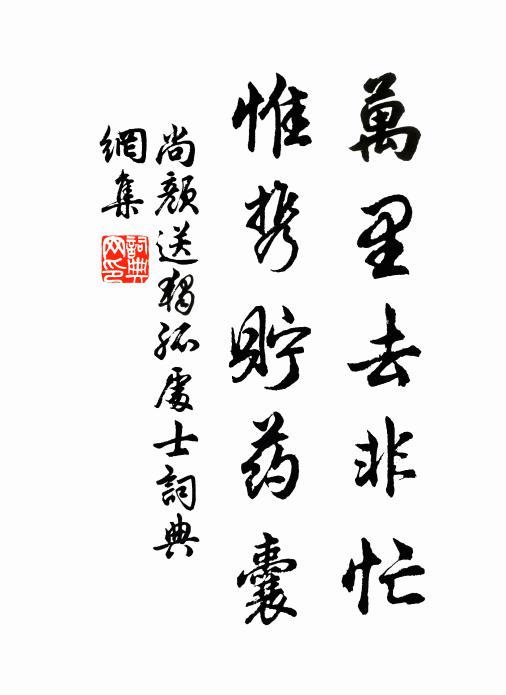 萬里去非忙
惟携貯药囊
尚顔送獨孤處士詞典
網集
詞典
网印